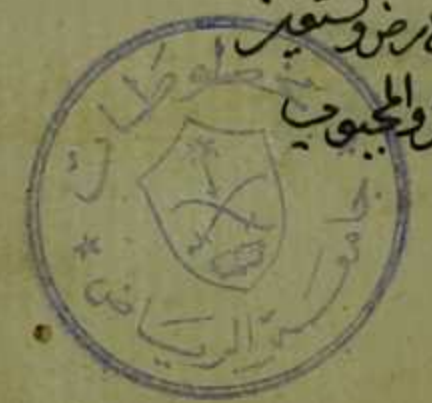 والمجبوب
مخطوطات
جامعة الرياض